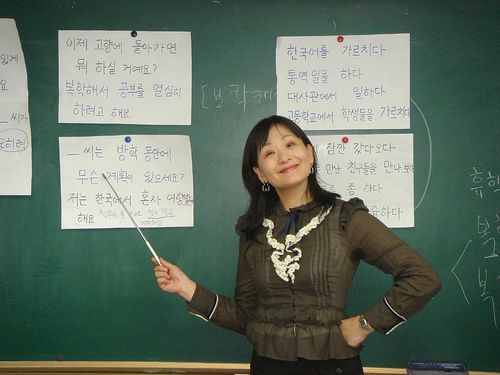 있게
요.
씨가
이제 고향에 돌아가면
뭐 하실 거예요?
복학해서 공부를 열심히
하려고 해요
한국어를 가르치다
통역 일을 하다
대사관에서 일하다
고등학교에서 학생들을 가르치다
씨는 방학 동안에
무슨 계획이 있으세요?
저는 한국에서 혼자 여행
해요
잠깐 갔다오다
만난 친구들을 만나
좀 하다
하다
휴학
복